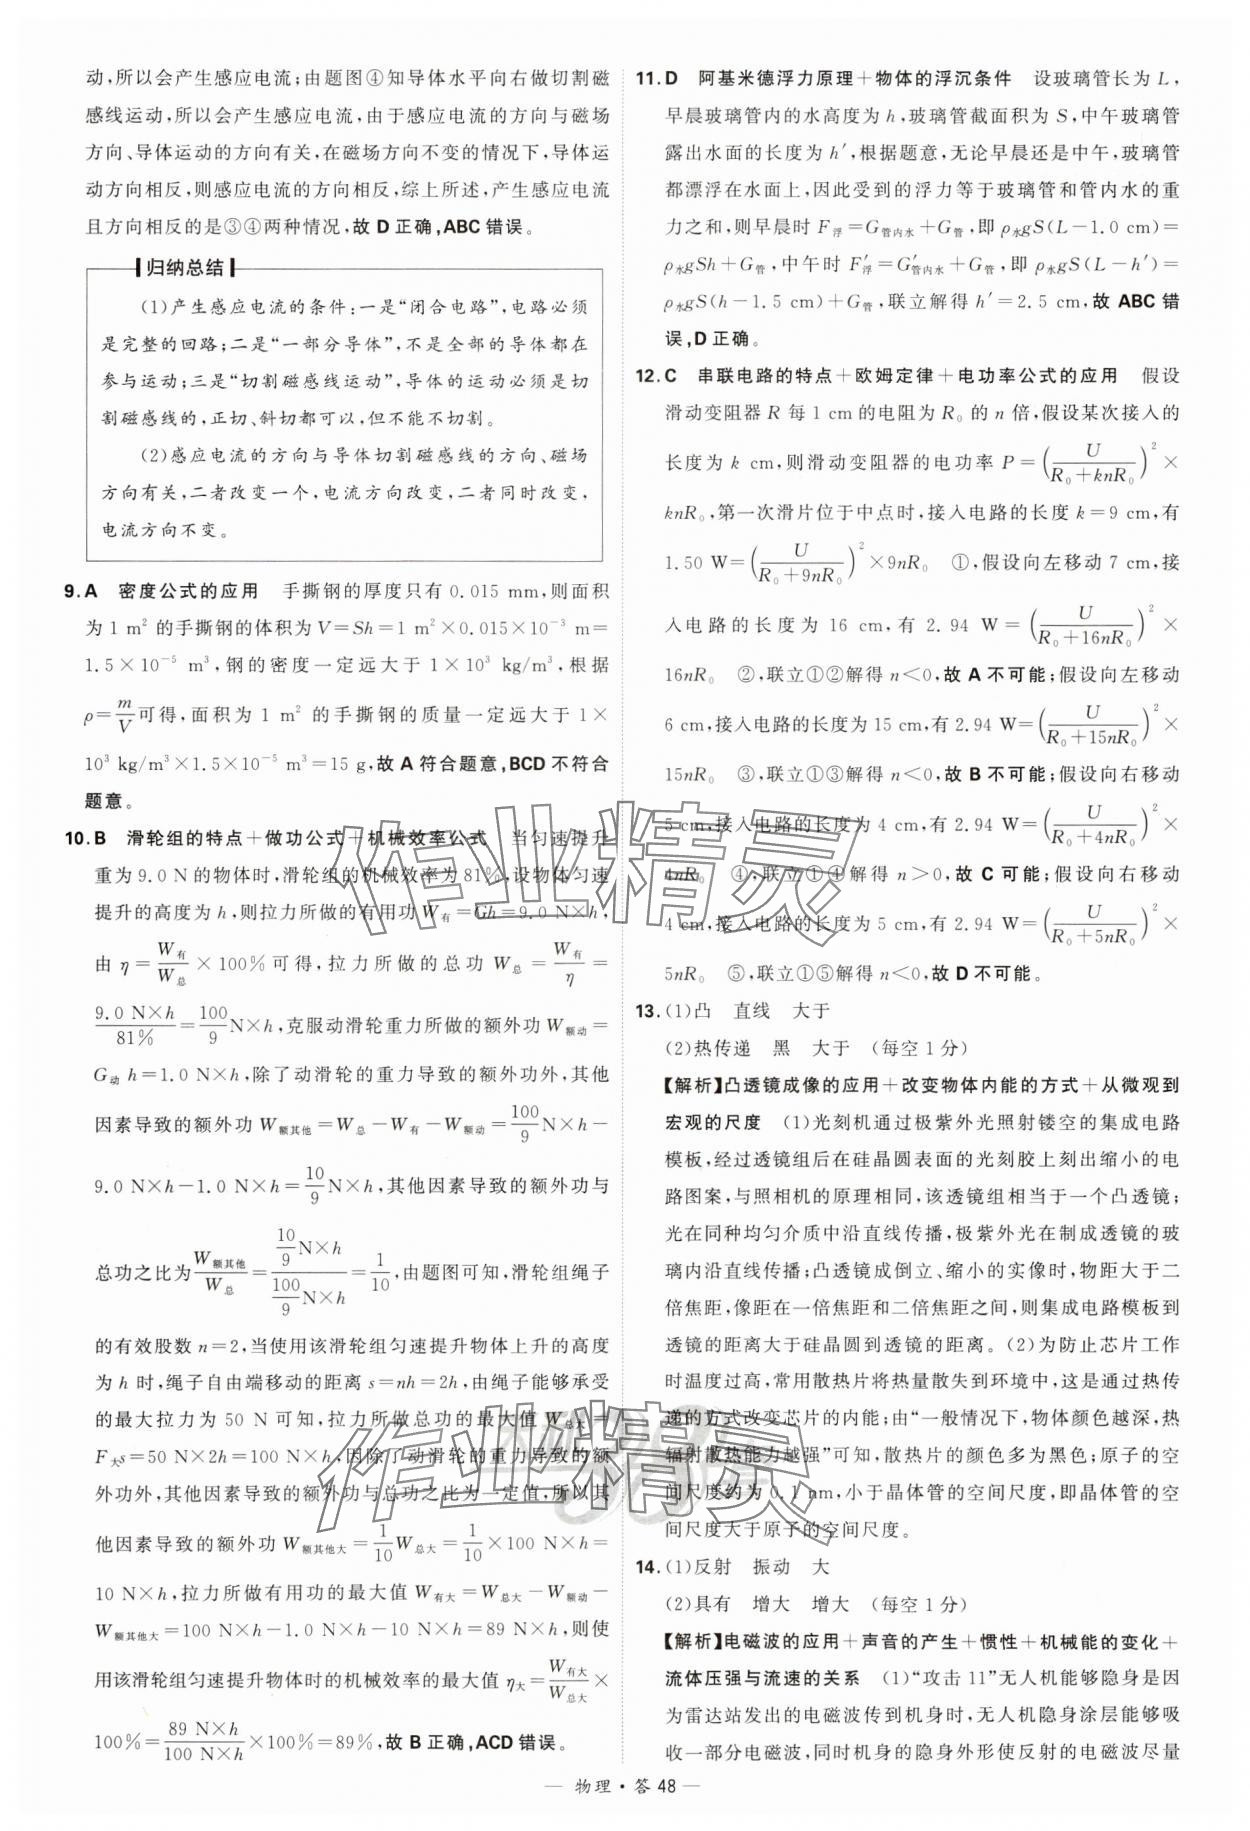 动,所以会产生感应电流;由题图④知导体水平向右做切割磁
感线运动,所以会产生感应电流,由于感应电流的方向与磁场
方向、导体运动的方向有关,在磁场方向不变的情况下,导体运
动方向相反,则感应电流的方向相反,综上所述,产生感应电流
且方向相反的是③④两种情况,故 D 正确,ABC 错误。
归纳总结
(1)产生感应电流的条件:一是“闭合电路”,电路必须
是完整的回路;二是“一部分导体”,不是全部的导体都在
参与运动;三是“切割磁感线运动”,导体的运动必须是切
割磁感线的,正切、斜切都可以,但不能不切割。
(2)感应电流的方向与导体切割磁感线的方向、磁场
方向有关,二者改变一个,电流方向改变,二者同时改变,
电流方向不变。
9. A 密度公式的应用 手撕钢的厚度只有 0.015 mm,则面积
为 1 m² 的手撕钢的体积为 V=Sh=1 m²×0.015×10⁻³ m=
1.5×10⁻⁵ m³,钢的密度一定远大于 1×10³ kg/m³,根据
ρ=m/V可得,面积为 1 m² 的手撕钢的质量一定远大于 1×
10³ kg/m³×1.5×10⁻⁵ m³=15 g,故 A 符合题意,BCD 不符合
题意。
10. B 滑轮组的特点+做功公式+机械效率公式 当匀速提升
重为 9.0 N 的物体时,滑轮组的机械效率为 81%,设物体匀速
提升的高度为 h,则拉力所做的有用功 W有=Gh=9.0 N×h,
由 η=W有/W总×100%可得,拉力所做的总功 W总=W有/η=
9.0 N×h/81%=100/9 N×h,克服动滑轮重力所做的额外功 W额动=
G动 h=1.0 N×h,除了动滑轮的重力导致的额外功外,其他
因素导致的额外功 W额其他=W总-W有-W额动=100/9 N×h-
9.0 N×h-1.0 N×h=10/9 N×h,其他因素导致的额外功与
总功之比为W额其他/W总=(10/9 N×h)/(100/9 N×h)=1/10,由题图可知,滑轮组绳子
的有效股数 n=2,当使用该滑轮组匀速提升物体上升的高度
为 h 时,绳子自由端移动的距离 s=nh=2h,由绳子能够承受
的最大拉力为 50 N 可知,拉力所做总功的最大值 W总大=
F大s=50 N×2h=100 N×h,因除了动滑轮的重力导致的额
外功外,其他因素导致的额外功与总功之比为一定值,所以其
他因素导致的额外功 W额其他大=1/10 W总大=1/10×100 N×h=
10 N×h,拉力所做有用功的最大值 W有大=W总大-W额动-
W额其他大=100 N×h-1.0 N×h-10 N×h=89 N×h,则使
用该滑轮组匀速提升物体时的机械效率的最大值 η大=W有大/W总大×
100%=89 N×h/100 N×h×100%=89%,故 B 正确,ACD 错误。
11. D 阿基米德浮力原理+物体的浮沉条件 设玻璃管长为 L,
早晨玻璃管内的水高度为 h,玻璃管截面积为 S,中午玻璃管
露出水面的长度为 h′,根据题意,无论早晨还是中午,玻璃管
都漂浮在水面上,因此受到的浮力等于玻璃管和管内水的重
力之和,则早晨时 F浮=G管内水+G管,即 ρ水gS(L-1.0 cm)=
ρ水gSh+G管,中午时 F′浮=G′管内水+G管,即 ρ水gS(L-h′)=
ρ水gS(h-1.5 cm)+G管,联立解得 h′=2.5 cm,故 ABC 错
误,D 正确。
12. C 串联电路的特点+欧姆定律+电功率公式的应用 假设
滑动变阻器 R 每 1 cm 的电阻为 R₀ 的 n 倍,假设某次接入的
长度为 k cm,则滑动变阻器的电功率 P=(U/(R₀+knR₀))²×
knR₀,第一次滑片位于中点时,接入电路的长度 k=9 cm,有
1.50 W=(U/(R₀+9nR₀))²×9nR₀ ①,假设向左移动 7 cm,接
入电路的长度为 16 cm,有 2.94 W=(U/(R₀+16nR₀))²×
16nR₀ ②,联立①②解得 n<0,故 A 不可能;假设向左移动
6 cm,接入电路的长度为 15 cm,有 2.94 W=(U/(R₀+15nR₀))²×
15nR₀ ③,联立①③解得 n<0,故 B 不可能;假设向右移动
5 cm,接入电路的长度为 4 cm,有 2.94 W=(U/(R₀+4nR₀))²×
4nR₀ ④,联立①④解得 n>0,故 C 可能;假设向右移动
4 cm,接入电路的长度为 5 cm,有 2.94 W=(U/(R₀+5nR₀))²×
5nR₀ ⑤,联立①⑤解得 n<0,故 D 不可能。
13. (1)凸 直线 大于
(2)热传递 黑 大于 (每空 1 分)
【解析】凸透镜成像的应用+改变物体内能的方式+从微观到
宏观的尺度 (1)光刻机通过极紫外光照射镂空的集成电路
模板,经过透镜组后在硅晶圆表面的光刻胶上刻出缩小的电
路图案,与照相机的原理相同,该透镜组相当于一个凸透镜;
光在同种均匀介质中沿直线传播,极紫外光在制成透镜的玻
璃内沿直线传播;凸透镜成倒立、缩小的实像时,物距大于二
倍焦距,像距在一倍焦距和二倍焦距之间,则集成电路模板到
透镜的距离大于硅晶圆到透镜的距离。(2)为防止芯片工作
时温度过高,常用散热片将热量散失到环境中,这是通过热传
递的方式改变芯片的内能;由“一般情况下,物体颜色越深,热
辐射散热能力越强”可知,散热片的颜色多为黑色;原子的空
间尺度约为 0.1 nm,小于晶体管的空间尺度,即晶体管的空
间尺度大于原子的空间尺度。
14. (1)反射 振动 大
(2)具有 增大 增大 (每空 1 分)
【解析】电磁波的应用+声音的产生+惯性+机械能的变化+
流体压强与流速的关系 (1)“攻击 11”无人机能够隐身是因
为雷达站发出的电磁波传到机身时,无人机隐身涂层能够吸
收一部分电磁波,同时机身的隐身外形使反射的电磁波尽量
— 物理·答 48 —
作业精灵
作业精灵